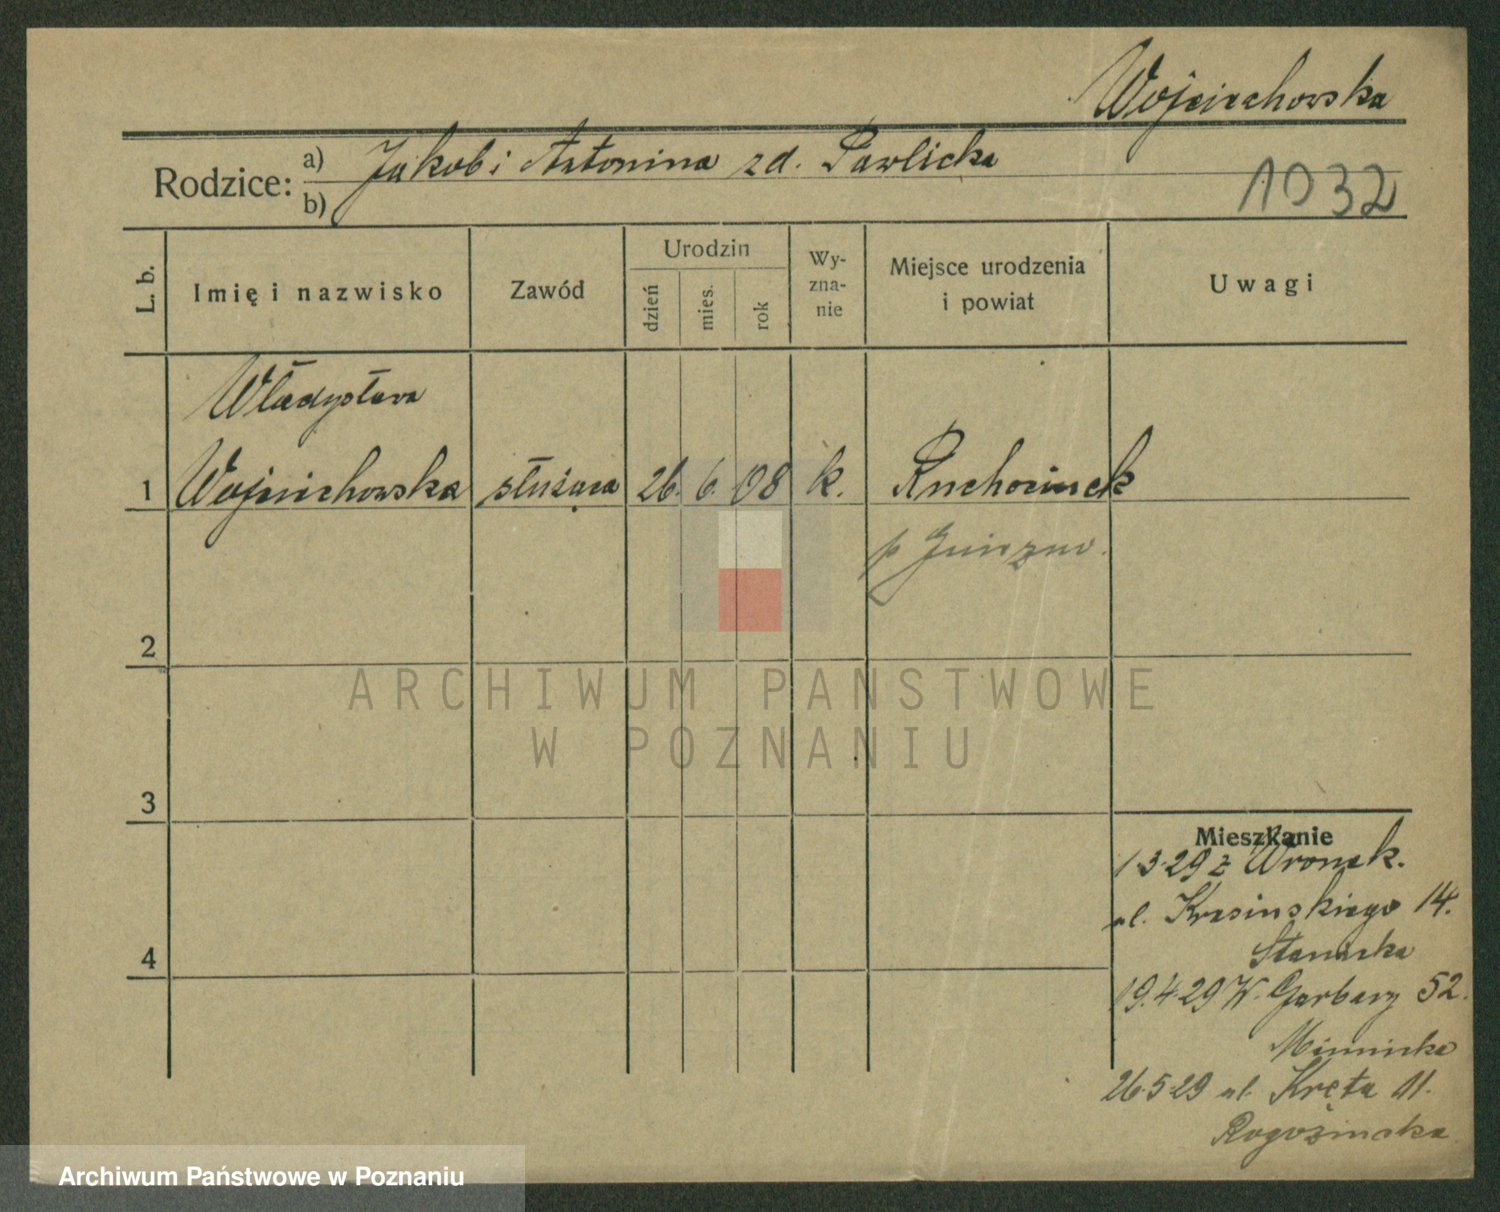 Wojciechowska
Rodzice: a) Jakob i Antonina zd. Pawlicka
b)
1032
L. b.
Imię i nazwisko
Zawód
Urodzin
dzień
mies.
rok
Wy-
zna-
nie
Miejsce urodzenia
i powiat
Uwagi
Władysława
1 Wojciechowska służąca 26. 6. 08 k. Ruchocinek
p Gniezno.
2
3
4
ARCHIWUM PAŃSTWOWE
W POZNANIU
Mieszkanie
1.3.29 z Wronek.
ul. Krasińskiego 14.
19.4.29 W. Garbary 52.
26.5.29 ul. Kręta 11.
Rogozińska
Archiwum Państwowe w Poznaniu